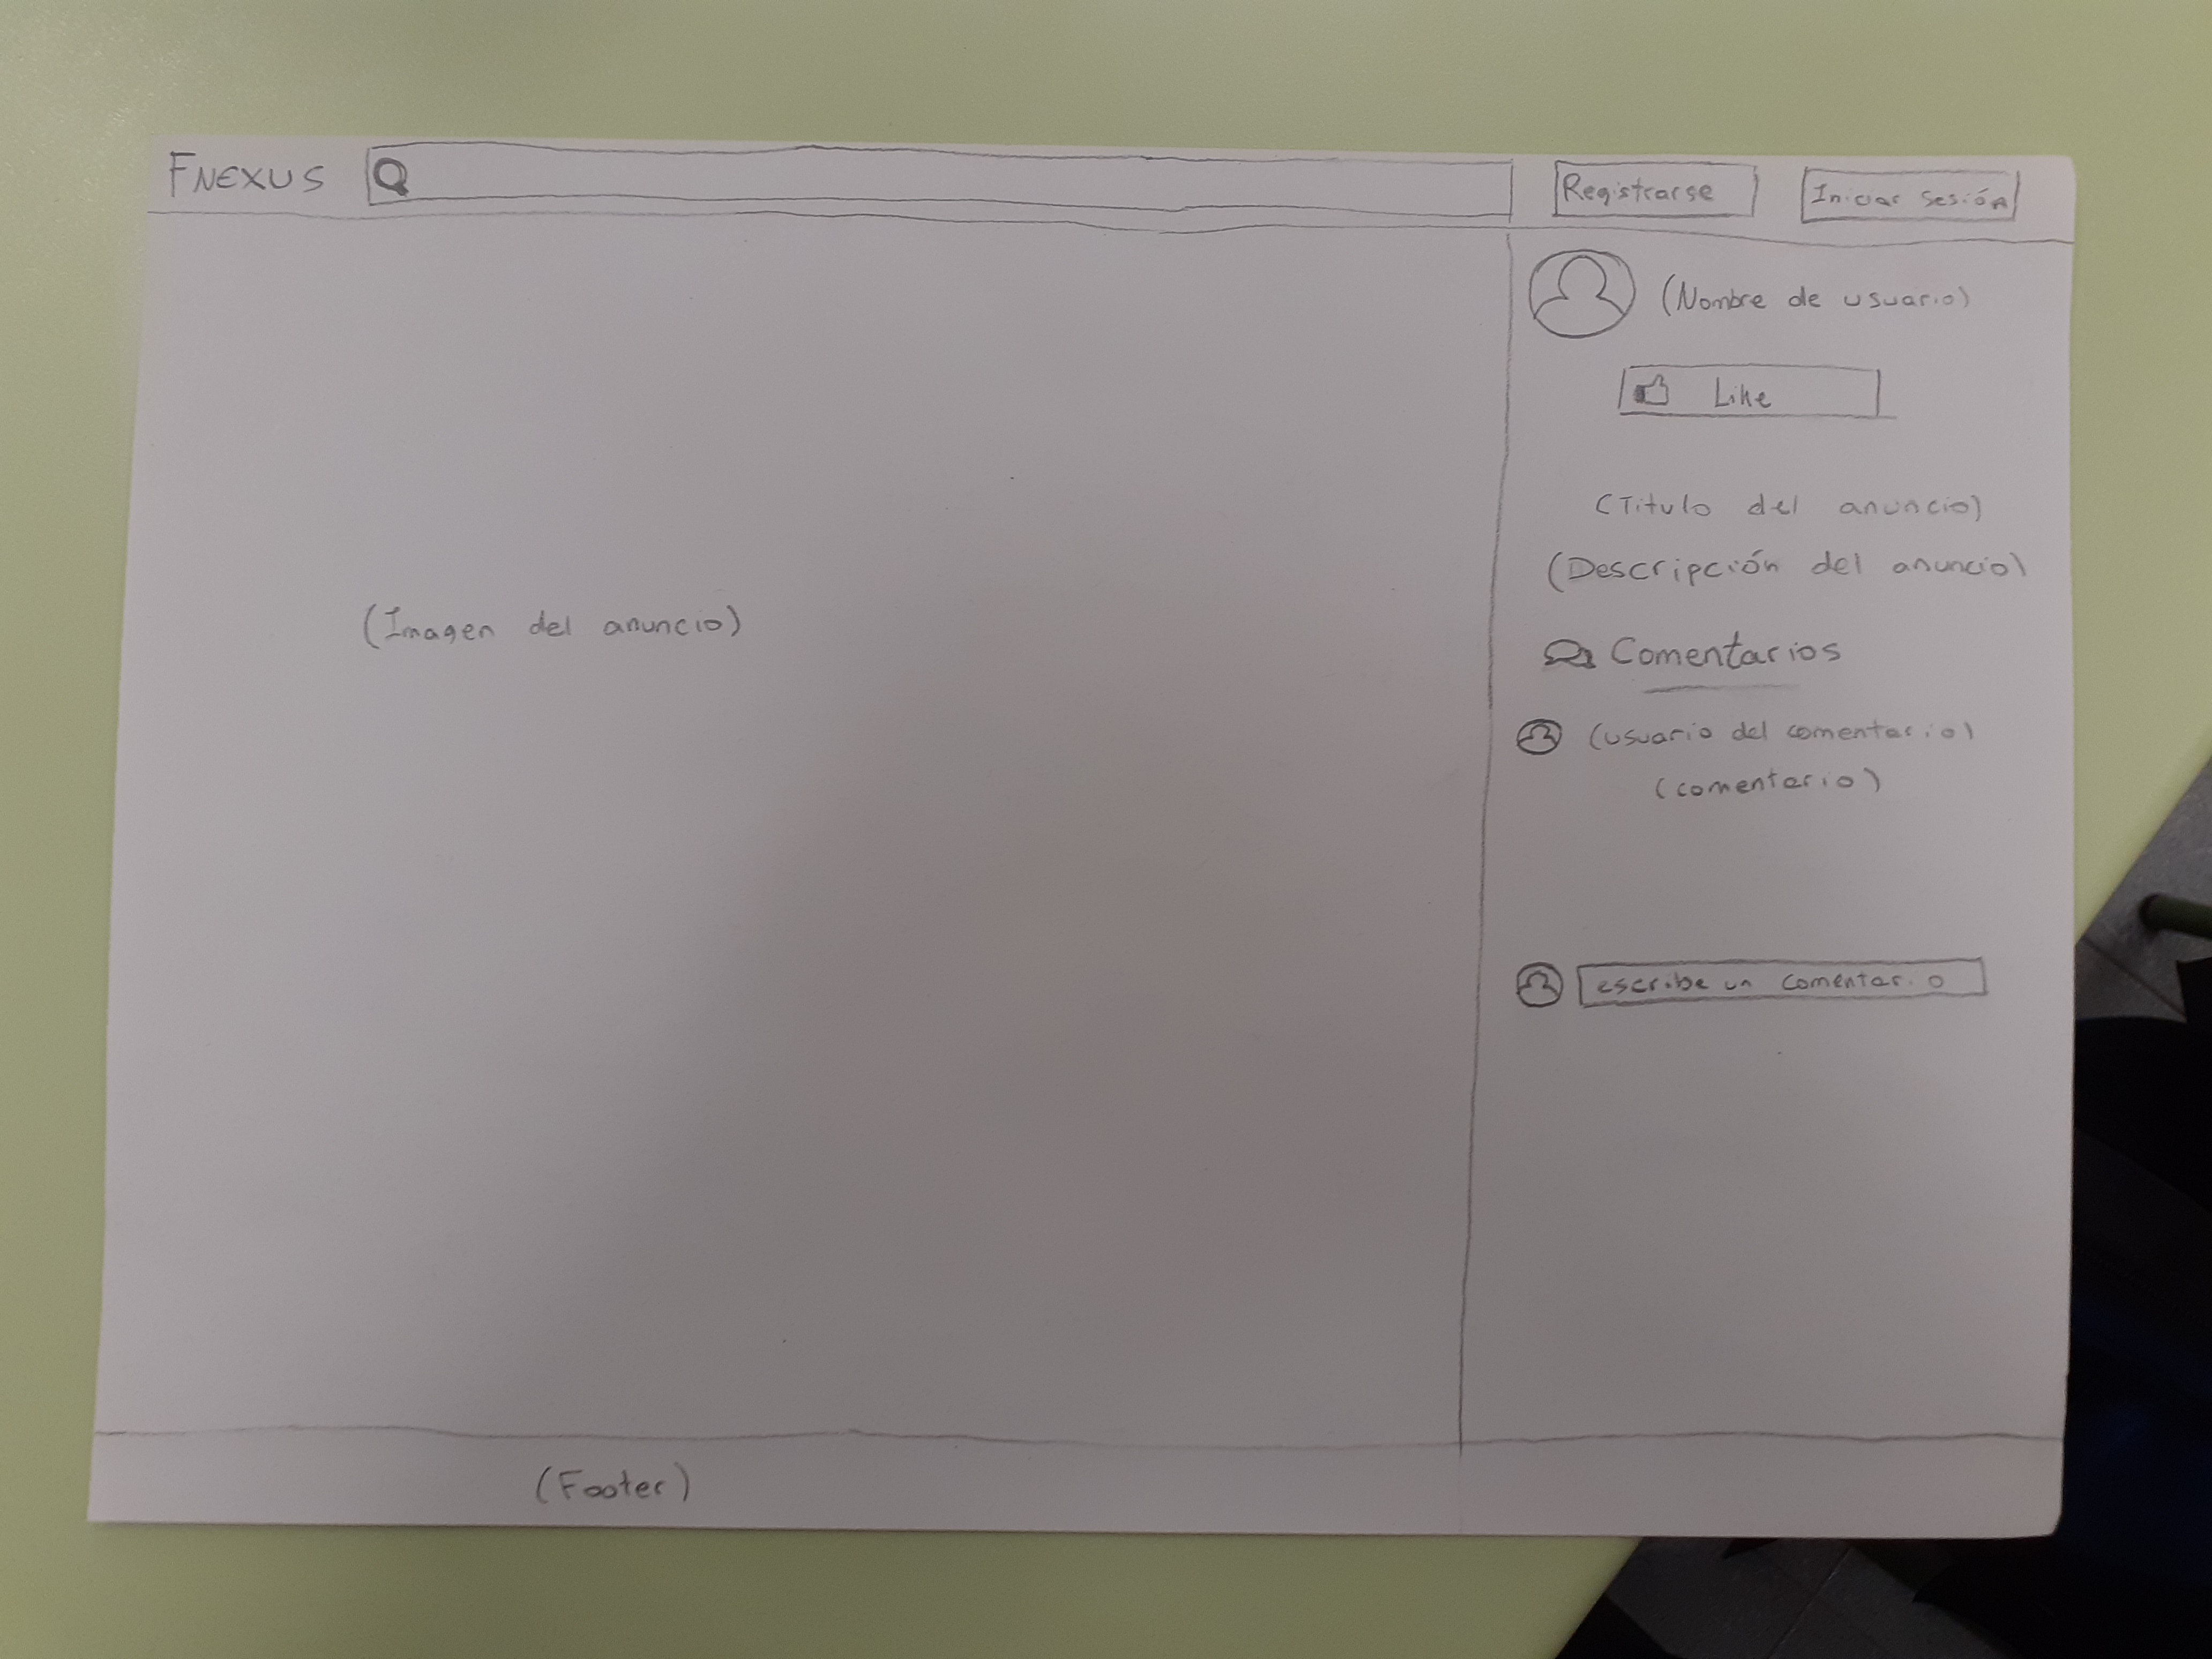 FNEXUS
Registrarse
Iniciar sesión
(Imagen del anuncio)
(Nombre de usuario)
Like
(Titulo del anuncio)
(Descripción del anuncio)
Comentarios
(usuario del comentario)
(comentario)
escribe un comentario
(Footer)